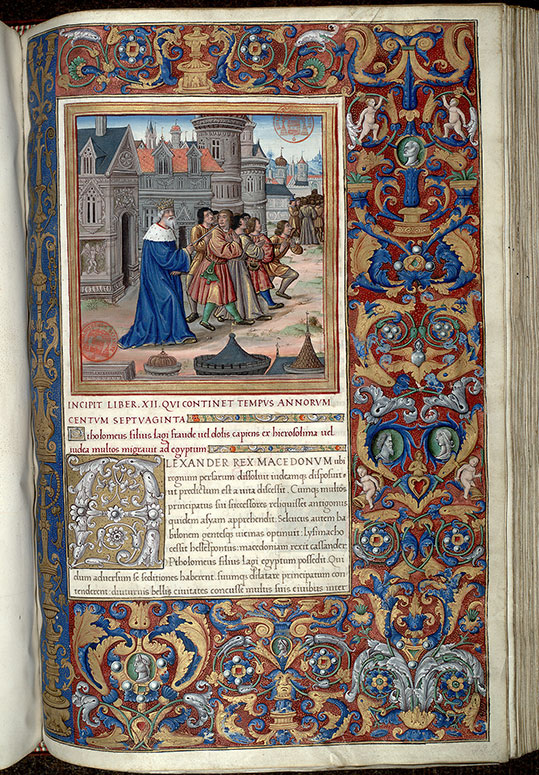 INCIPIT LIBER. XII. QUI CONTINET TEMPUS ANNORUM
CENTUM SEPTUAGINTA
Ptholomeus filius lagi fraude uel dolis capiens ex hierosolima uel
iudea multos migrauit ad egyptum
ALEXANDER REX MACEDONUM ubi
regnum persarum dissoluit iudeamq; disposuit
ut predictum est a uita discessit. Cumq; multos
principatus sui successores reliquisset antigonus
quidem asyam apprehendit. Seleucus autem ba
bilonem gentesq; uicinas optinuit. Lysimacho
cessit hellespontus: macedoniam rexit cassander.
Ptholomeus filius lagi egyptum possedit. Qui
dum aduersum se seditiones haberent. suumq; dilatare principatum con
tenderent: diuturnis bellis ciuitates concusse multis suis ciuibus inter